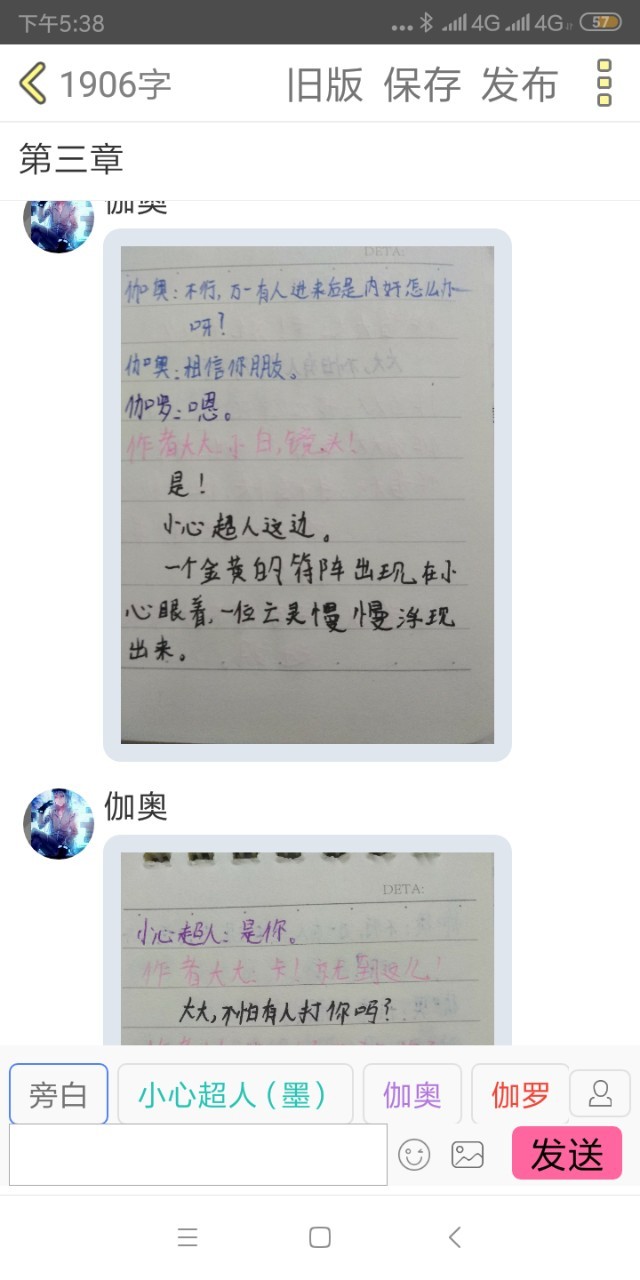 下午5:38
... 4G 4G 57
1906字 旧版 保存 发布
第三章
伽奥
DETA:
伽奥：不行，万一有人进来后是内奸怎么办
呀？
伽奥：相信你朋友。
伽罗：嗯。
作者大大：小白，镜头！
是！
小心超人这边。
一个金黄的符阵出现在小
心眼着，一位亡灵慢慢浮现
出来。
伽奥
DETA:
小心超人：是你。
作者大大：卡！就到这儿！
大大，不怕有人打你吗？
旁白 小心超人（墨） 伽奥 伽罗
发送